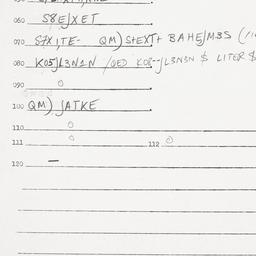 060 S8EJXET
070 S7X1TE- QM) S+EXT+ BAHEJM3S
080 K05JL3N1N /QED K08--JL3N3N $ LITER $
090 0
100 QM) JATKE
110 0
111 0 112 0
120 —